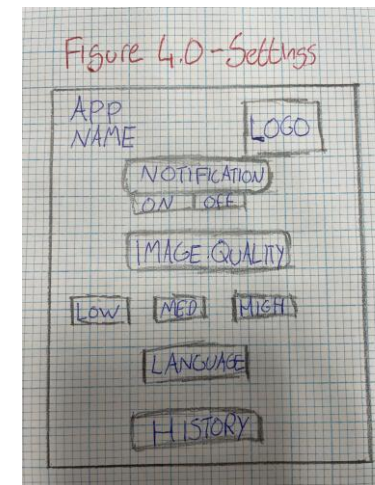 Figure 4.0 - Settings
APP
NAME
LOGO
NOTIFICATION
ON OFF
IMAGE QUALITY
LOW MED HIGH
LANGUAGE
HISTORY